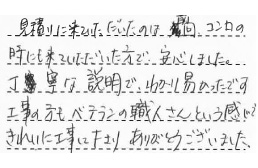 見積りに来ていただいたのは 前回、コンロの
時にも来ていただいた方で、安心しました。
丁寧な説明で、分かり易かったです
工事の方もベテランの職人さんという感じで
きれいに工事して下さり ありがとうございました。